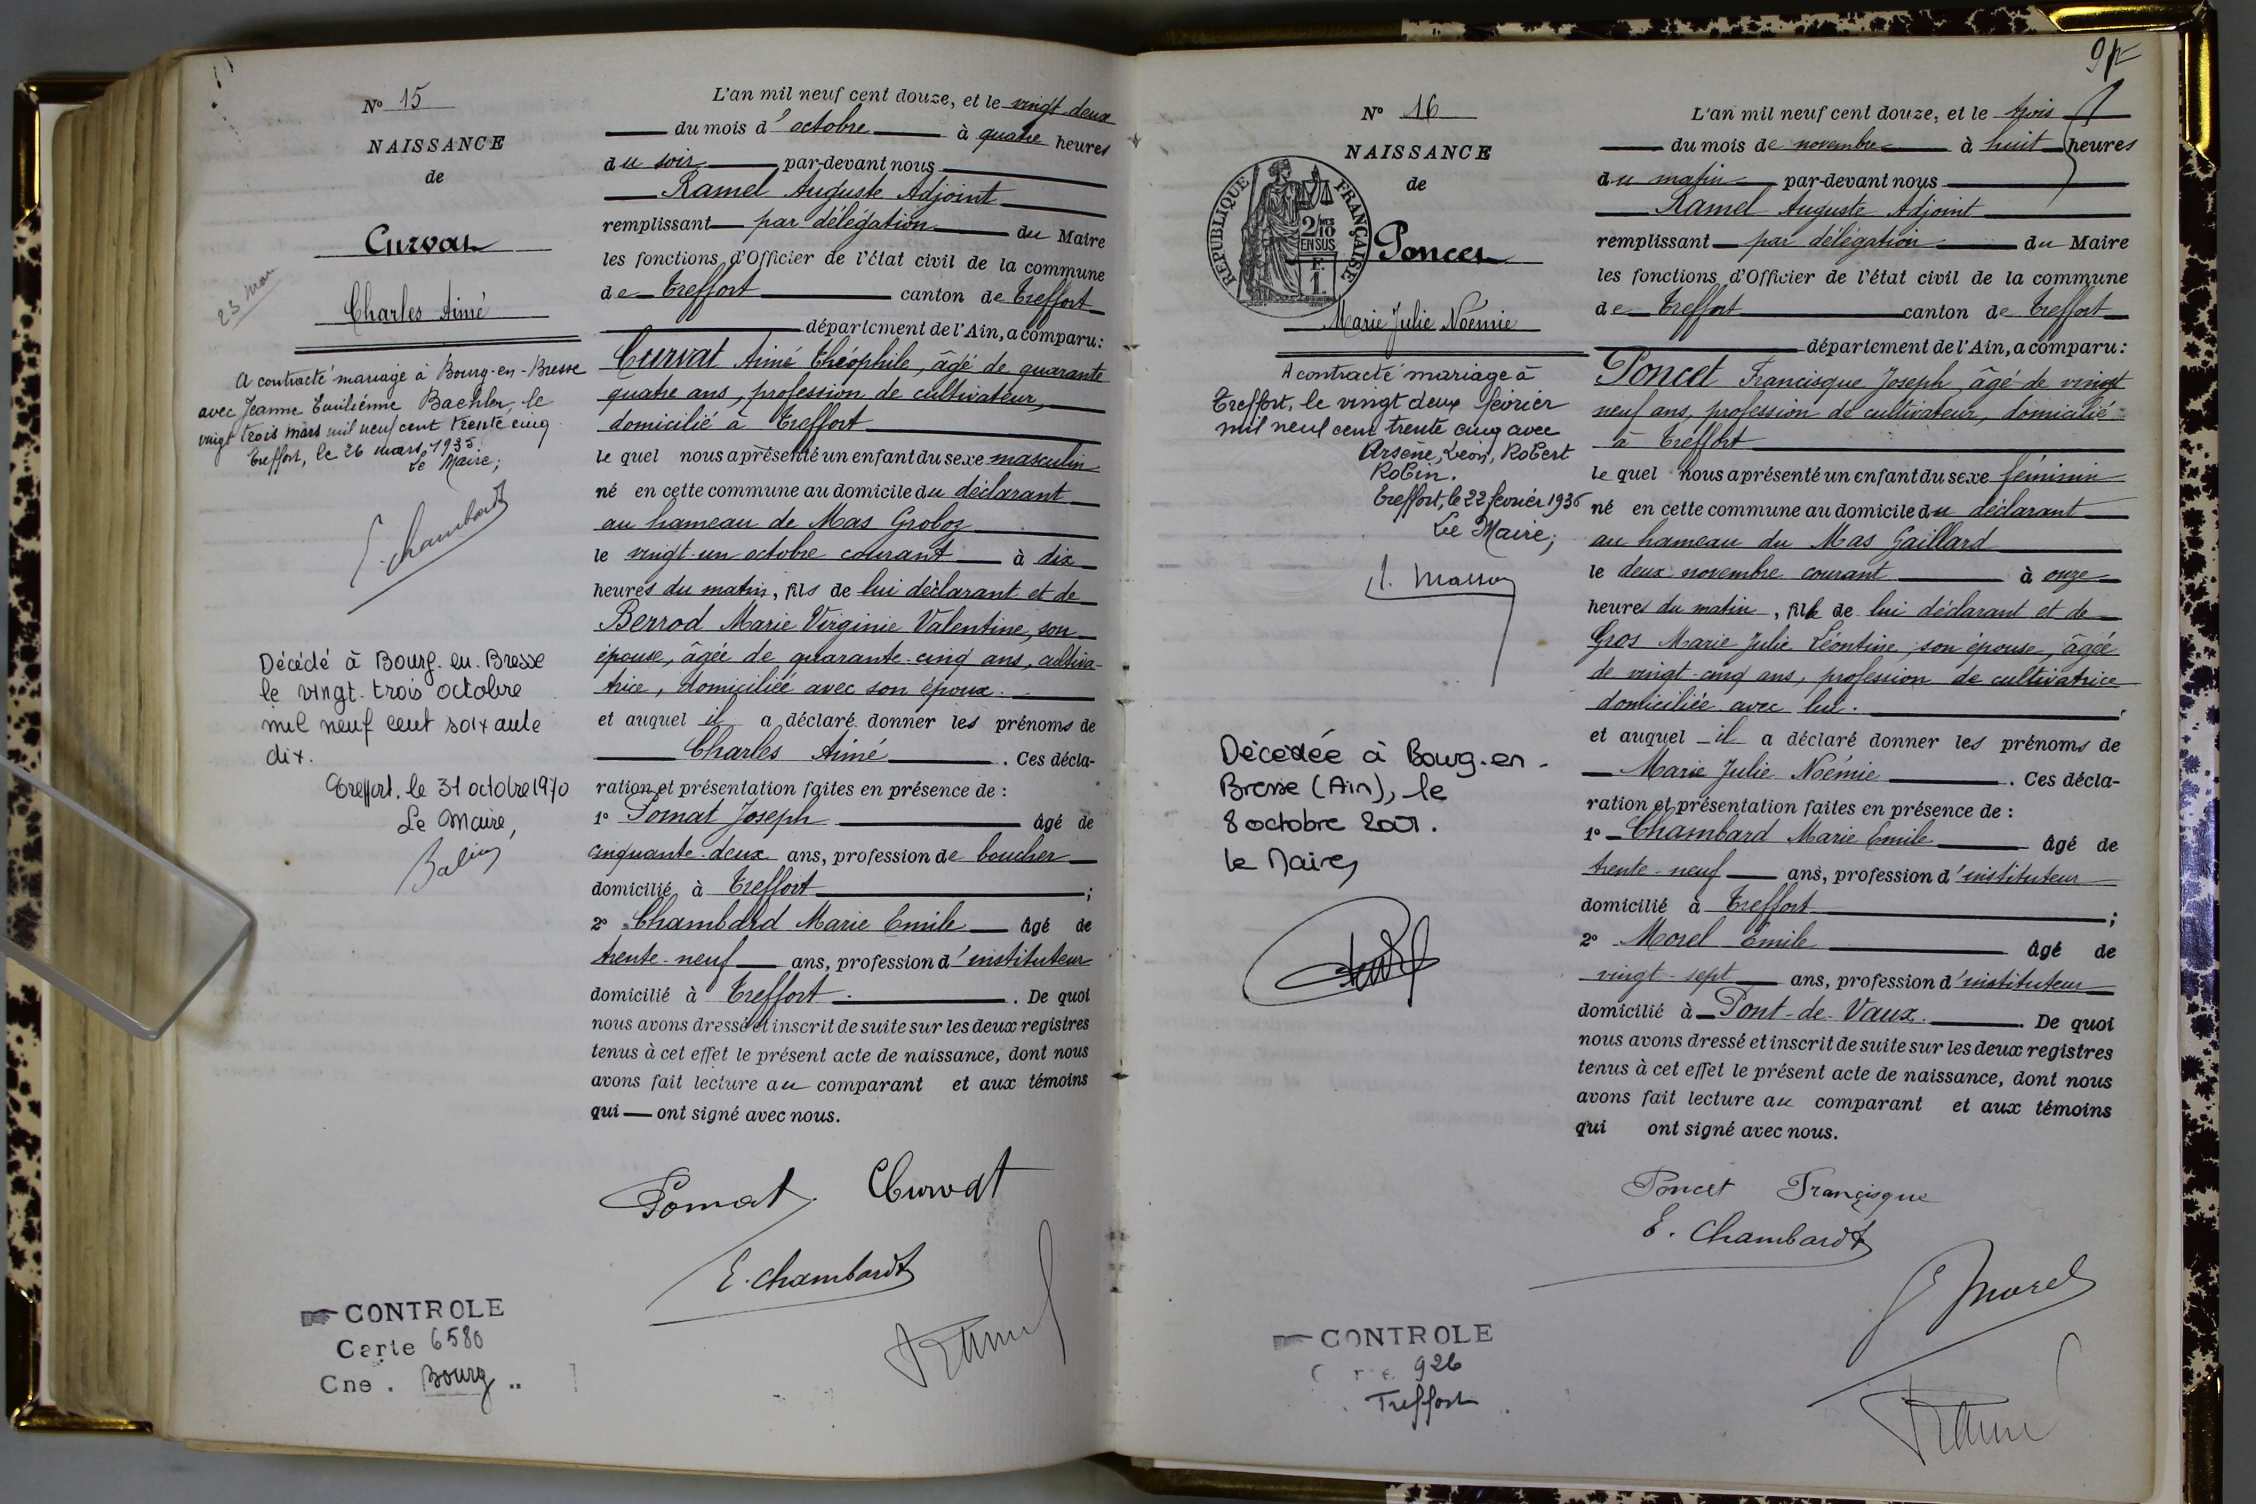 N° 15
NAISSANCE
de
Curvat
Charles Aimé
23 mars
A contracté mariage à Bourg-en-Bresse
avec Jeanne Emilienne Bachler, le
vingt trois mars mil neuf cent trente cinq
Treffort, le 26 mars 1935
Le Maire;
E. Chambard
Décédé à Bourg-en-Bresse
le vingt-trois octobre
mil neuf cent soixante
dix.
Treffort, le 31 octobre 1970
Le Maire,
CONTROLE
Carte 6580
Cne. Bourg
L'an mil neuf cent douze, et le vingt deux
du mois d'octobre à quatre heures
du soir par-devant nous
Ramel Auguste Adjoint
remplissant par délégation du Maire
les fonctions d'Officier de l'état civil de la commune
de Treffort canton de Treffort
département de l'Ain, a comparu:
Curvat Aimé Théophile, âgé de quarante
quatre ans, profession de cultivateur,
domicilié à Treffort
lequel nous a présenté un enfant du sexe masculin
né en cette commune au domicile du déclarant
au hameau de Mas Groboz
le vingt-un octobre courant à dix
heures du matin, fils de lui déclarant et de
Berrod Marie Virginie Valentine, son
épouse, âgée de quarante-cinq ans, cultiva-
trice, domiciliée avec son époux.
et auquel il a déclaré donner les prénoms de
Charles Aimé. Ces décla-
ration et présentation faites en présence de:
1° Pomat Joseph âgé de
cinquante-deux ans, profession de boucher
domicilié à Treffort;
2° Chambard Marie Emile âgé de
trente-neuf ans, profession d'instituteur
domicilié à Treffort. De quoi
nous avons dressé et inscrit de suite sur les deux registres
tenus à cet effet le présent acte de naissance, dont nous
avons fait lecture au comparant et aux témoins
qui ont signé avec nous.
Pomat Curvat
E. Chambard
Ramel
N° 16
NAISSANCE
de
RÉPUBLIQUE FRANÇAISE
2/10 EN SUS
F. 1.
Poncet
Marie Julie Noémie
A contracté mariage à
Treffort, le vingt deux février
mil neuf cent trente cinq avec
Arsène, Léon, Robert
Robin.
Treffort, le 22 février 1935
Le Maire;
Décédée à Bourg-en-
Bresse (Ain), le
8 octobre 2001.
le Maire,
CONTROLE
926
Treffort
L'an mil neuf cent douze, et le trois
du mois de novembre à huit heures
du matin par-devant nous
Ramel Auguste Adjoint
remplissant par délégation du Maire
les fonctions d'Officier de l'état civil de la commune
de Treffort canton de Treffort
département de l'Ain, a comparu:
Poncet Francisque Joseph, âgé de vingt
neuf ans, profession de cultivateur, domicilié
à Treffort
lequel nous a présenté un enfant du sexe féminin
né en cette commune au domicile du déclarant
au hameau du Mas Gaillard
le deux novembre courant à onze
heures du matin, fille de lui déclarant et de
Gros Marie Julie Léontine, son épouse, âgée
de vingt-cinq ans, profession de cultivatrice
domiciliée avec lui.
et auquel il a déclaré donner les prénoms de
Marie Julie Noémie. Ces décla-
ration et présentation faites en présence de:
1° Chambard Marie Emile âgé de
trente-neuf ans, profession d'instituteur
domicilié à Treffort;
2° Morel Emile âgé de
vingt-sept ans, profession d'instituteur
domicilié à Pont-de-Vaux. De quoi
nous avons dressé et inscrit de suite sur les deux registres
tenus à cet effet le présent acte de naissance, dont nous
avons fait lecture au comparant et aux témoins
qui ont signé avec nous.
Poncet Francisque
E. Chambard
E Morel
Ramel